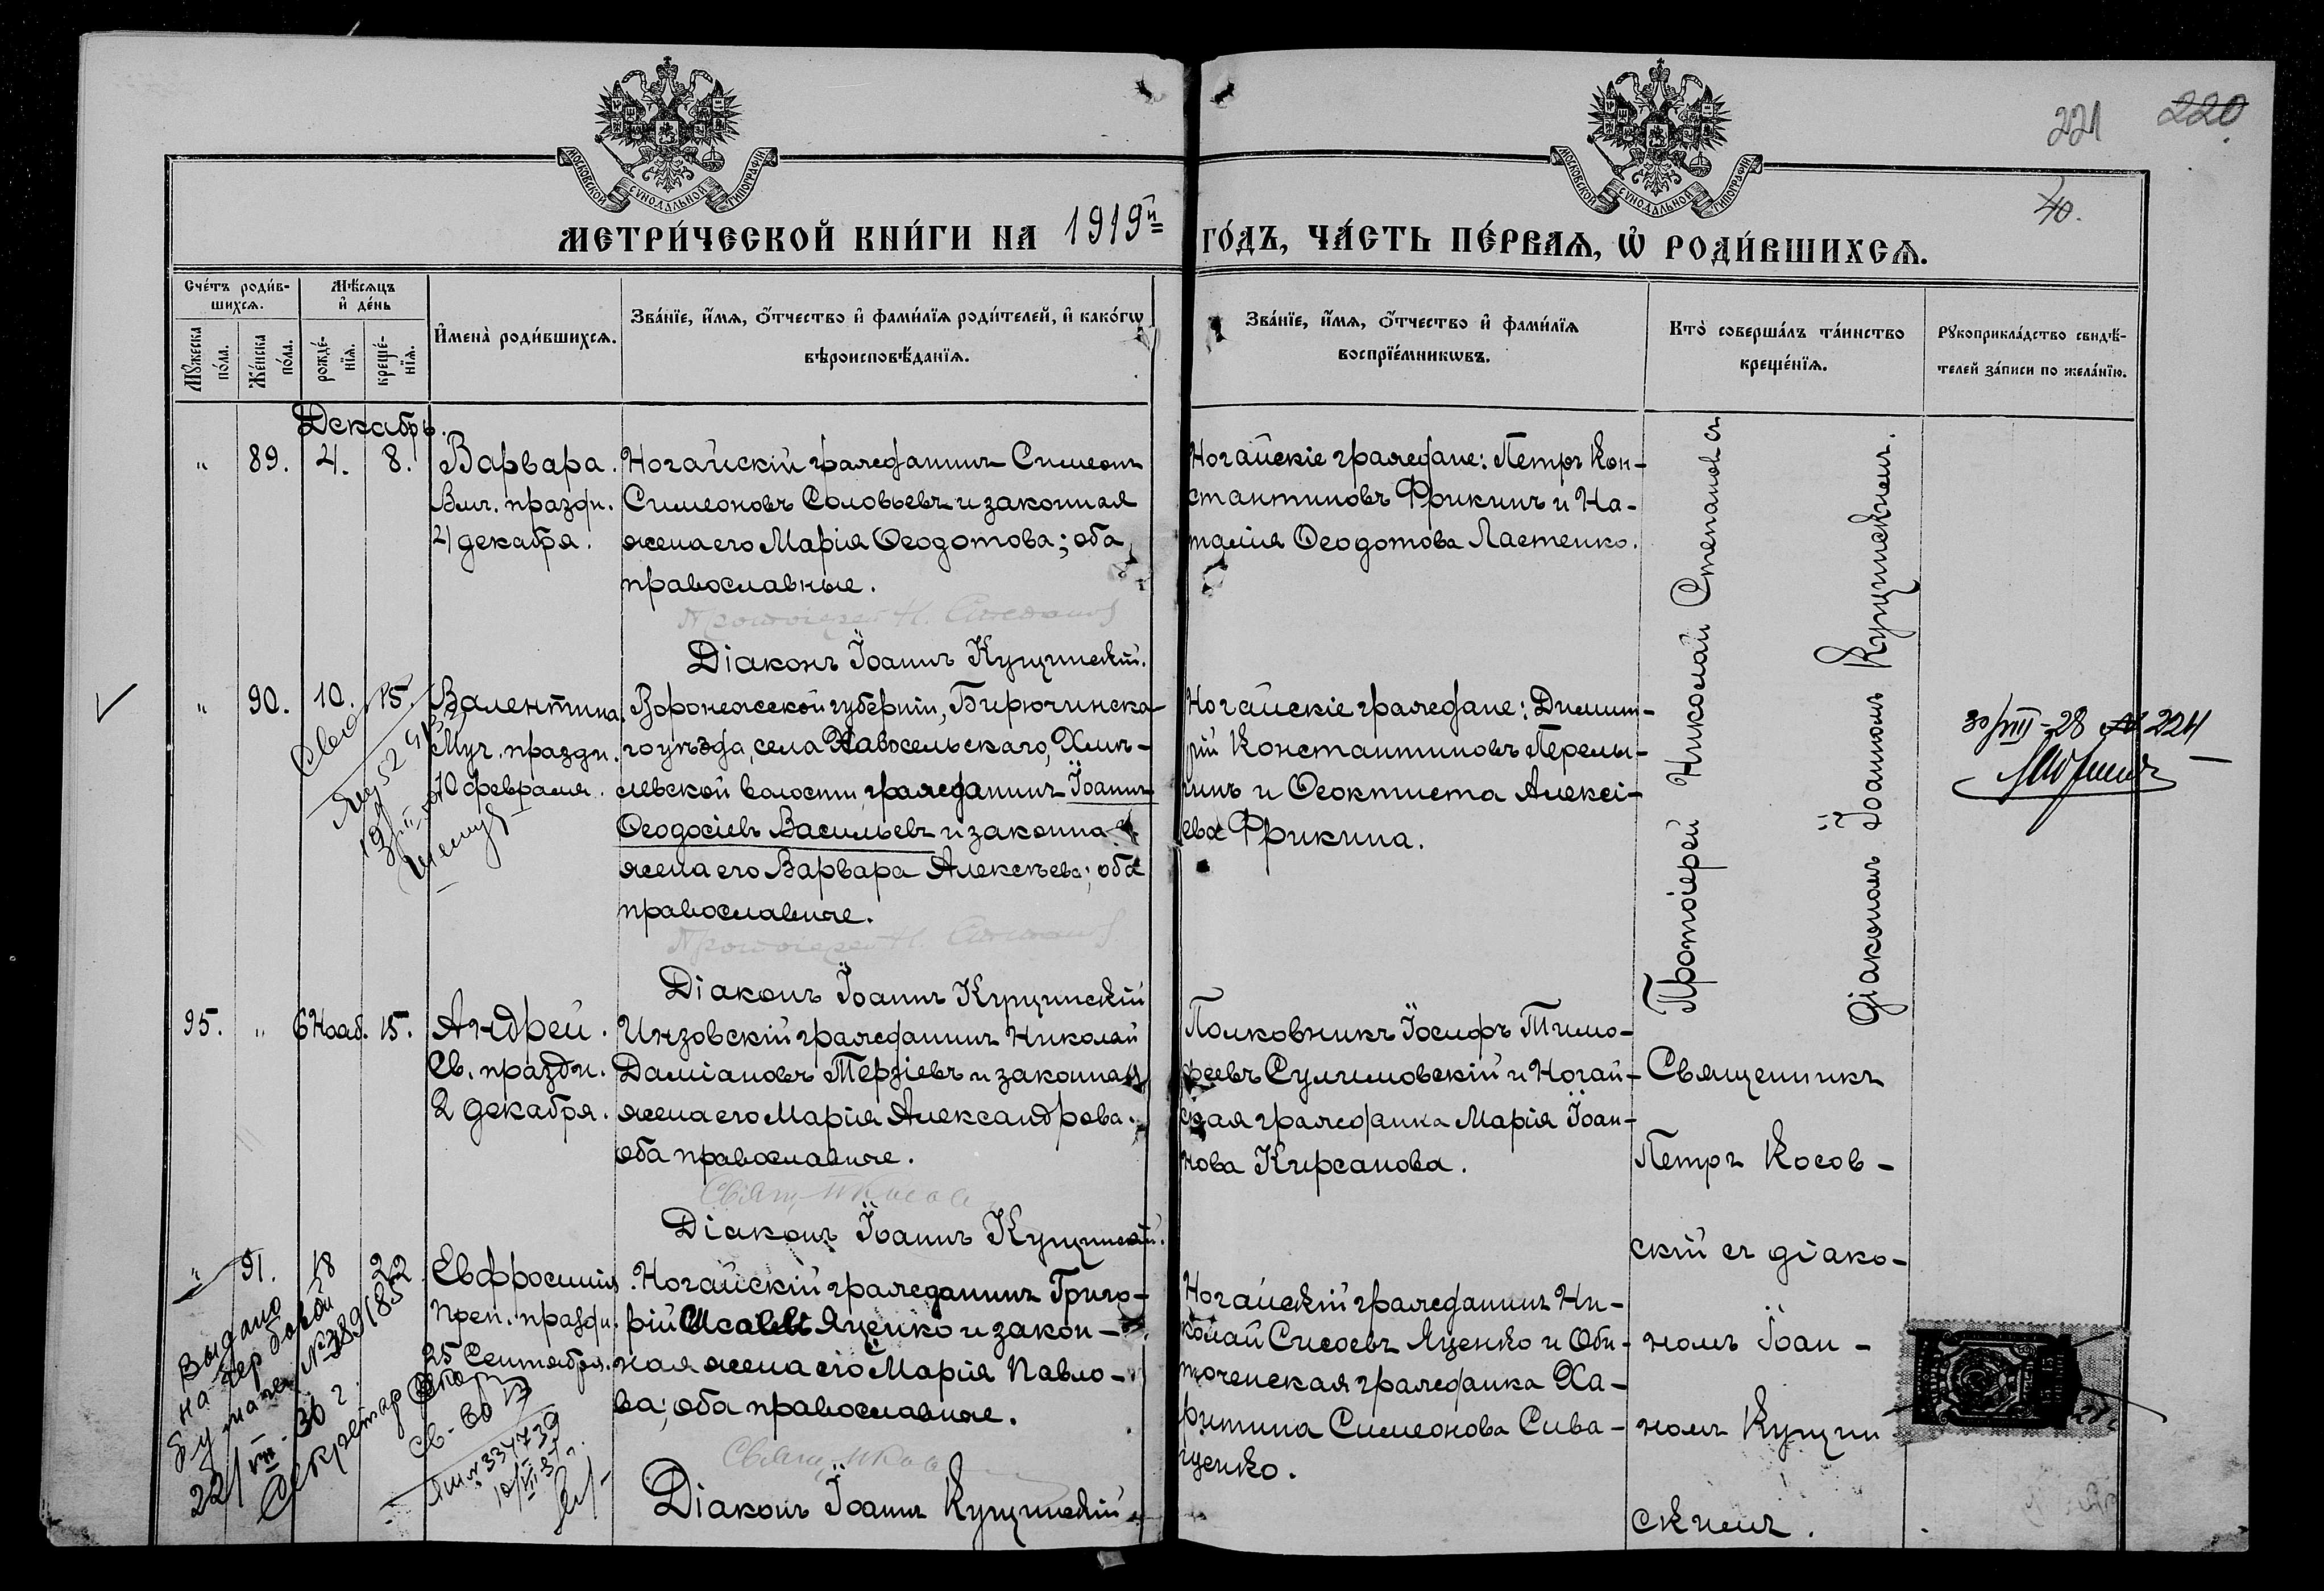 МОСКОВСКОЙ СѴНОДАЛЬНОЙ ТИПОГРАФІИ
МОСКОВСКОЙ СѴНОДАЛЬНОЙ ТИПОГРАФІИ
221 220
40.
МЕТРИ́ЧЕСКОЙ КНИ́ГИ НА 1919й ГО́ДЪ, ЧА́СТЬ ПЕ́РВАѦ, Ѡ҆ РОДИ́ВШИХСѦ.
Сче́тъ роди́в-
шихсѧ.
Мꙋ́жеска по́ла.
Же́нска по́ла.
Мѣ́сѧцъ и҆ де́нь
рожде́-нїѧ.
креще́-нїѧ.
И҆мена̀ роди́вшихсѧ.
Зва́нїе, и҆́мѧ, ѻ҆́тчество и҆ фами́лїѧ роди́телей, и҆ како́гѡ
вѣроисповѣ́данїѧ.
Зва́нїе, и҆́мѧ, ѻ҆́тчество и҆ фами́лїѧ
воспрїе́мникѡвъ.
Кто̀ соверша́лъ та́инство
креще́нїѧ.
Рꙋкоприкла́дство свидѣ́-
телей за́писи по жела́нїю.
Декабрь.
" 89. 4. 8. Варвара.
Влм. праздн.
4 декабря.
Ногайскій гражданинъ Симеонъ
Симеоновъ Соловьевъ и законная
жена его Марія Ѳеодотова; оба
православные.
Протоіерей Н. Степановъ
Діаконъ Іоаннъ Кущинскій.
Ногайскіе граждане: Петръ Кон-
стантиновъ Фрикинъ и На-
талія Ѳеодотова Ластенко.
Протоіерей Николай Степановъ съ
діакономъ Іоанномъ Кущинскимъ.
" 90. 10. 15. Валентина.
Муч. праздн.
10 февраля.
Воронежской губерніи, Бирючинска-
го уѣзда, села Новосельскаго, Хмѣ-
левской волости, гражданинъ Іоаннъ
Ѳеодосіевъ Васильевъ и законная
жена его Варвара Алексѣева; оба
православные.
Протоіерей Н. Степановъ
Діаконъ Іоаннъ Кущинскій
Ногайскіе граждане: Димит-
рій Константиновъ Перелы-
гинъ и Ѳеоктиста Алексі-
ева Фрикина.
30/VIII-28 № 224
95. " 6 Нояб. 15. Андрей.
Св. праздн.
2 декабря.
Инзовскій гражданинъ Николай
Даміановъ Терзіевъ и законная
жена его Марія Александрова.
оба православные.
Діаконъ Іоаннъ Кущинскій.
Полковникъ Іосифъ Тимо-
феевъ Сулимовскій и Ногай-
ская гражданка Марія Іоан-
нова Кирсанова.
Священникъ
Петръ Косов-
скій съ діако-
номъ Іоан-
номъ Кущин
скимъ.
" 91. 18 22 Евфросинія
Преп. праздн.
25 Сентября.
Ногайскій гражданинъ Григо-
рій Исаевъ Яценко и закон-
ная жена его Марія Павло-
ва; оба православные.
Діаконъ Іоаннъ Кущинскій
Ногайскій гражданинъ Ни-
колай Сисоевъ Яценко и Оби-
точенская гражданка Ха-
ритина Симеонова Сива-
щенко.
Выдано
на гербовой
бумаге № 389185
22/VIII-30 г.
Секретарь
Св-во
№ 334739